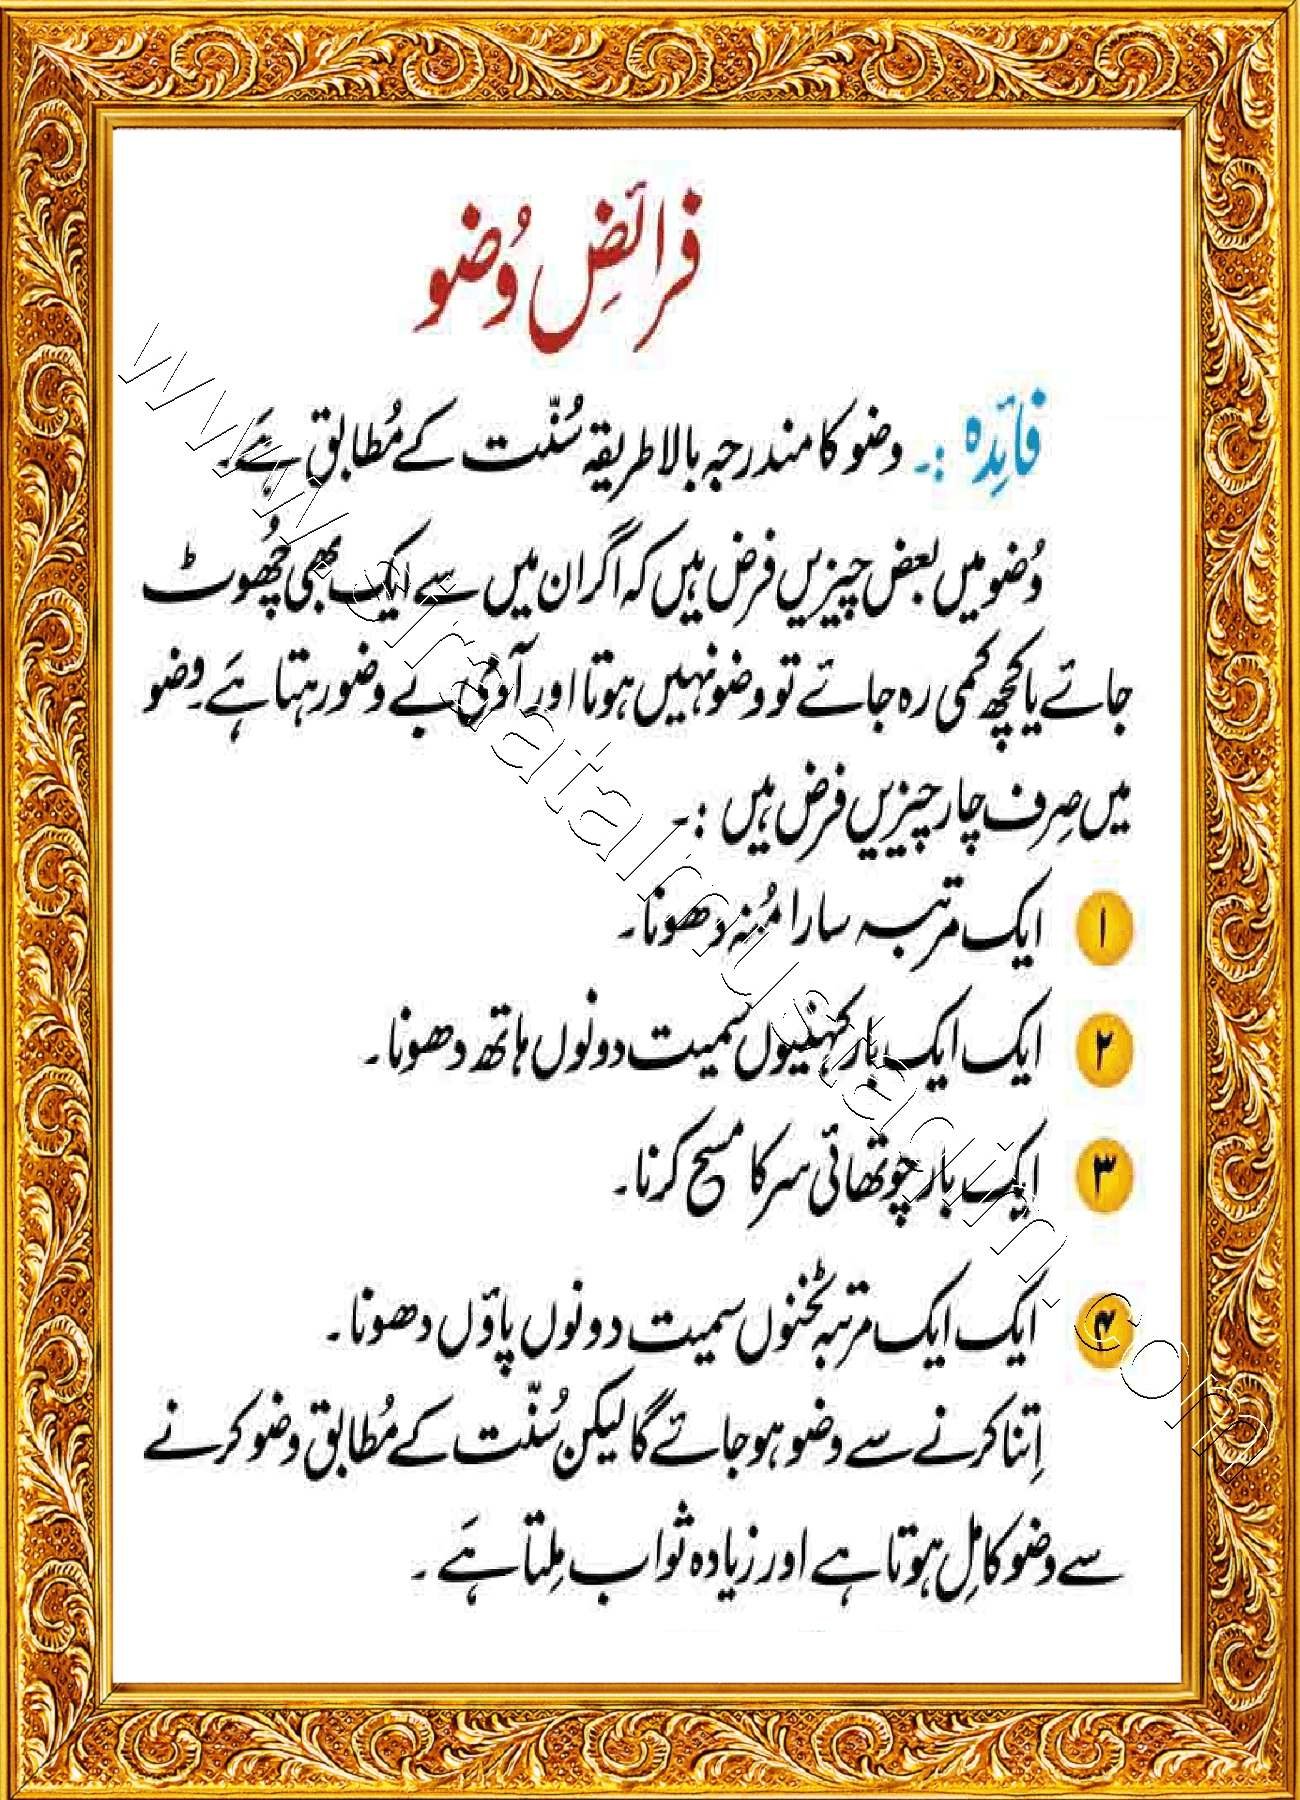 فرائضِ وُضو
فائِدہ :۔ وضو کا مندرجہ بالا طریقہ سُنّت کے مُطابق ہَے۔
وُضو میں بعض چیزیں فرض ہیں کہ اگر ان میں سے ایک بھی چُھوٹ
جائے یا کچھ کمی رہ جائے تو وضو نہیں ہوتا اور آدمی بے وضو رہتا ہَے۔ وضو
میں صِرف چار چیزیں فرض ہیں :۔
۱ ایک مرتبہ سارا مُنہ دھونا۔
۲ ایک ایک بار کہنیوں سمیت دونوں ہاتھ دھونا۔
۳ ایک بار چوتھائی سر کا مسح کرنا۔
۴ ایک ایک مرتبہ ٹخنوں سمیت دونوں پاؤں دھونا۔
اِتنا کرنے سے وضو ہو جائے گا لیکن سُنّت کے مُطابق وضو کرنے
سے وضو کامِل ہوتا ہے اور زیادہ ثواب مِلتا ہَے۔
www.siratalmustaqin.com